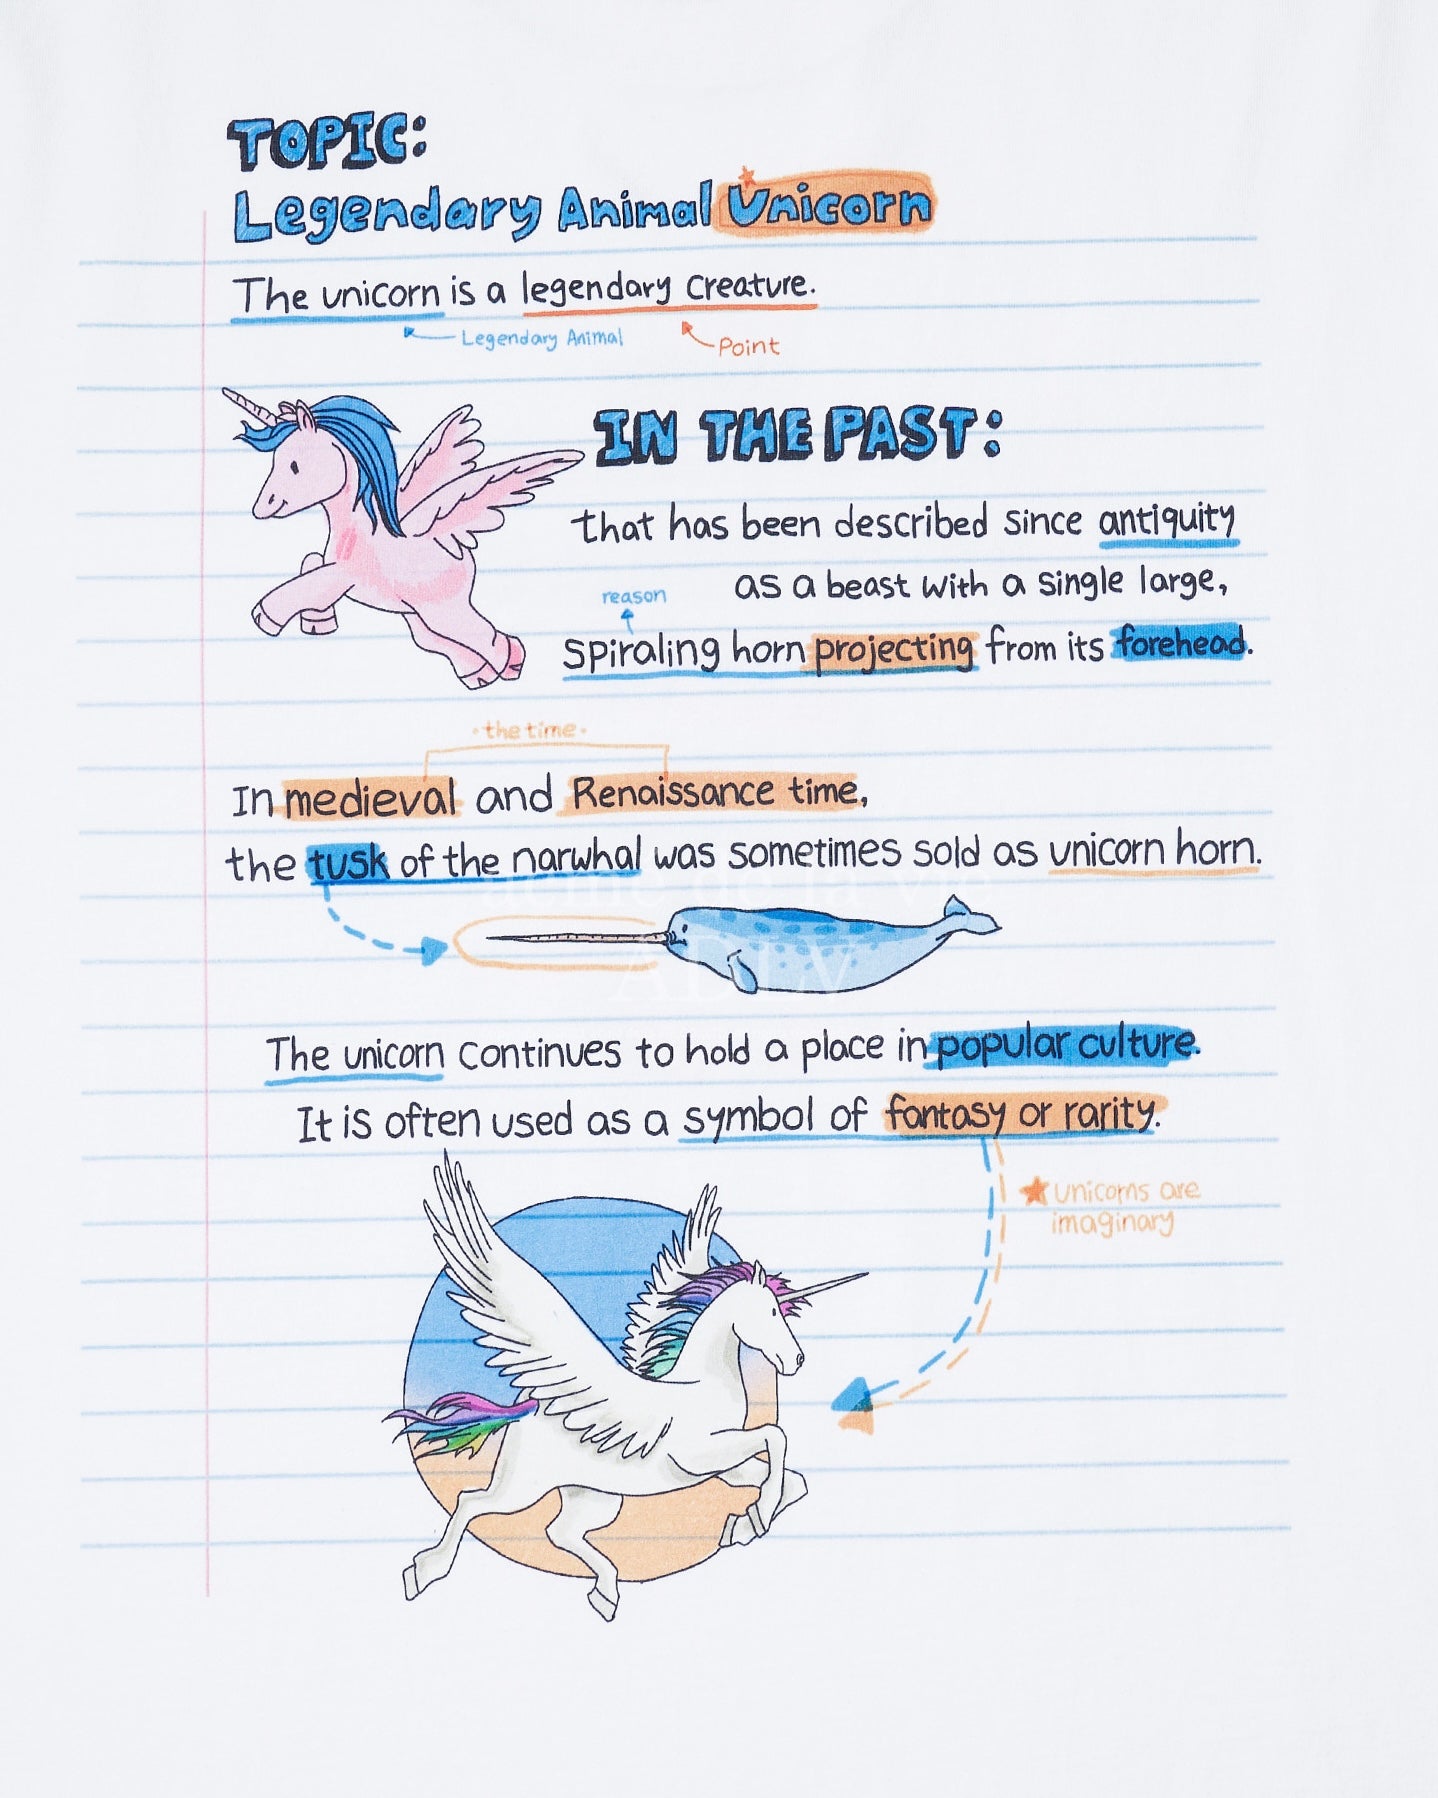 TOPIC:
Legendary Animal Unicorn
The unicorn is a legendary creature.
Legendary Animal
Point
IN THE PAST:
that has been described since antiquity
as a beast with a single large,
reason
spiraling horn projecting from its forehead.
· the time ·
In medieval and Renaissance time,
the tusk of the narwhal was sometimes sold as unicorn horn.
acme de la vie
ADLV
The unicorn continues to hold a place in popular culture.
It is often used as a symbol of fantasy or rarity.
unicorns are
imaginary